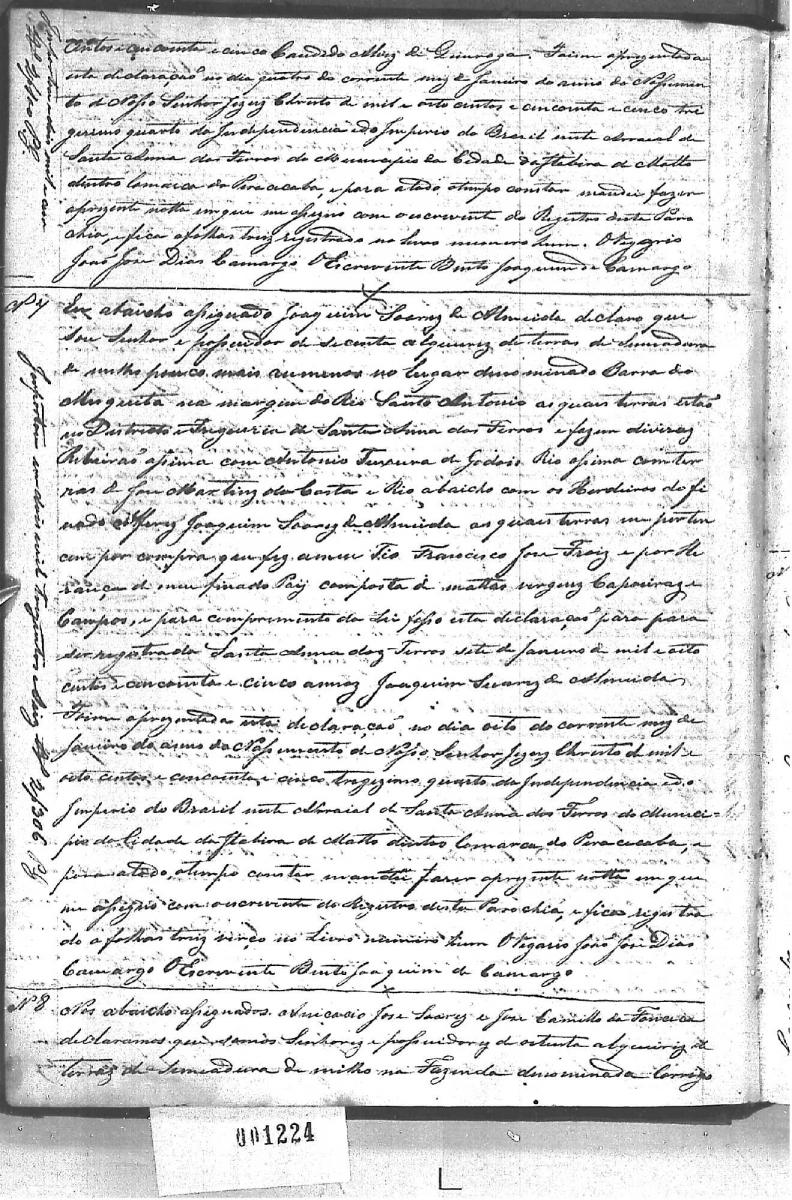 centos e cincoenta e cinco Candido Alvez de Quiroga. Foi me aprezentada
esta declaraçaõ no dia quatro do corrente mez de Janeiro do anno do Nascimen
to de Nosso Senhor Jezuz Christo de mil e oito centos e cincoenta e cinco tri
gezimo quarto da Independencia e do Imperio do Brazil neste Arraial de
Santa Anna dos Ferros do Municipio da Cidade da Itabira de Matto
dentro Comarca do Peracicaba, e para a todo o tempo constar mandei fazer
a prezente notta em que me assigno com o escrevente do Registro desta Paro
chia, e fica a folhas trez registrado no Livro numero hum. O Vigario
João Joze Dias Camargo O Escrevente Bento Joaquim de Camargo
Nº 7
Eu abaicho assignado Joaquim Soarez de Almeida declaro que
sou Senhor e possuidor de secenta alqueirez de terras de semeadura
de milho pouco mais ou menos no lugar denominado Barra do
Misquita na margem do Rio Santo Antonio as quais terras estaõ
no Districto e Freguezia de Santa Anna dos Ferros e fazem divizas
Ribeiraõ assima com Antonio Teixeira de Godois Rio assima com ter
ras de Joze Martinz da Costa e Rio abaicho com os Herdeiros do fi
nado Alferez Joaquim Soarez de Almeida as quais terras me perten
cem por compra que fiz a meu Tio Francisco Joze Froiz e por He
rança de meu finado Pay composta de mattas virgens Capoeiraz e
Campos, e para comprimento da Lei fasso esta declaraçaõ para para
ser registrada Santa Anna dos Ferros sete de Janeiro de mil e oito
centos e cincoenta e cinco annos Joaquim Suarez de Almeida
Foi me aprezentada esta declaraçaõ no dia oito do corrente mez de
Janeiro do anno do Nascimento de Nosso Senhor Jezuz Christo de mil e
oito centos e cincoenta e cinco trigezimo quarto da Independencia e do
Imperio do Brazil neste Arraial de Santa Anna dos Ferros do Munici-
pio da Cidade da Itabira de Matto dentro Comarca do Peracicaba, e
para a todo o tempo constar mandei fazer a prezente notta em que
me assigno com o escrevente do Registro desta Parochia, e fica registra
do a folhas trez verço no Livro numero hum O Vigario João Joze Dias
Camargo O Escrevente Bento Joaquim de Camargo
Nº 8
Nos abaicho assignados Anicacio Joze Soarez e Joze Camillo da Fonceca
declaramos que somos Senhorez e possuidorez de oitenta alqueirez de
terras de semeadura de milho na Fazenda denominada Corrigo
001224